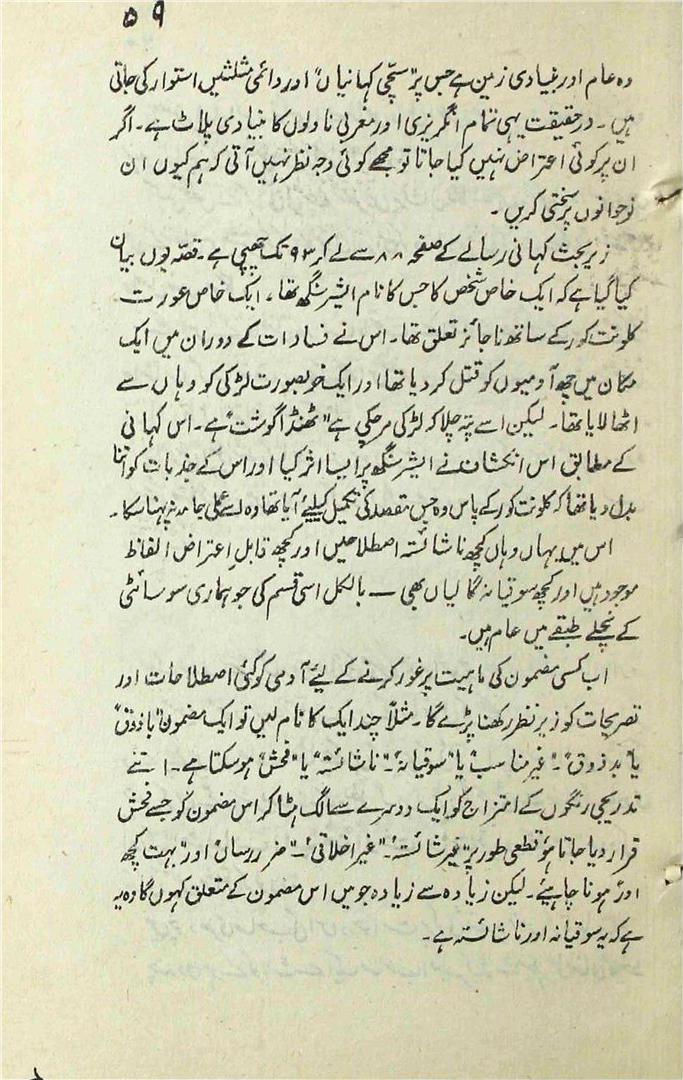 ۵۹
وہ عام اور بنیادی زمین ہے جس پر "سچّی کہانیاں" اور دائمی مثلثیں استوار کی جاتی
ہیں۔ درحقیقت یہی تمام انگریزی اور مغربی ناولوں کا بنیادی پلاٹ ہے۔ اگر
ان پر کوئی اعتراض نہیں کیا جاتا تو مجھے کوئی وجہ نظر نہیں آتی کہ ہم کیوں ان
نوجوانوں پر سختی کریں۔
زیر بحث کہانی رسالے کے صفحہ ۸۸ سے لے کر ۹۳ تک چھپی ہے۔ قصّہ یوں بیان
کیا گیا ہے کہ ایک خاص شخص کا جس کا نام ایشر سنگھ تھا، ایک خاص عورت
کلونت کور کے ساتھ ناجائز تعلق تھا۔ اس نے فسادات کے دوران میں ایک
مکان میں چھ آدمیوں کو قتل کر دیا تھا اور ایک خوبصورت لڑکی کو وہاں سے
اٹھا لایا تھا۔ لیکن اسے پتہ چلا کہ لڑکی مر چکی ہے "ٹھنڈا گوشت" ہے۔ اس کہانی
کے مطابق اس انکشاف نے ایشر سنگھ پر ایسا اثر کیا اور اس کے جذبات کو اتنا
بدل دیا تھا کہ کلونت کور کے پاس وہ جس مقصد کی تکمیل کیلئے آیا تھا وہ اسے عملی جامہ نہ پہنا سکا۔
اس میں یہاں وہاں کچھ ناشائستہ اصطلاحیں اور کچھ قابل اعتراض الفاظ
موجود ہیں اور کچھ سوقیانہ گالیاں بھی — بالکل اسی قسم کی جو ہماری سوسائٹی
کے نچلے طبقے میں عام ہیں۔
اب کسی مضمون کی ماہیت پر غور کرنے کے لیئے آدمی کو کئی اصطلاحات اور
تصریحات کو زیر نظر رکھنا پڑے گا۔ مثلاً چند ایک کا نام لیں تو ایک مضمون "باذوق"
یا "بدذوق"۔ "غیر مناسب" یا "سوقیانہ"۔ "ناشائستہ" یا "فحش" ہو سکتا ہے۔ اتنے
تدریجی رنگوں کے امتزاج کو ایک دوسرے سے الگ ہٹا کر اس مضمون کو جسے فحش
قرار دیا جاتا ہو قطعی طور پر "غیر شائستہ"۔ "غیر اخلاقی"۔ "ضرر رساں" اور "بہت کچھ
اور" ہونا چاہیئے۔ لیکن زیادہ سے زیادہ جو میں اس مضمون کے متعلق کہوں گا وہ یہ
ہے کہ یہ سوقیانہ اور ناشائستہ ہے۔